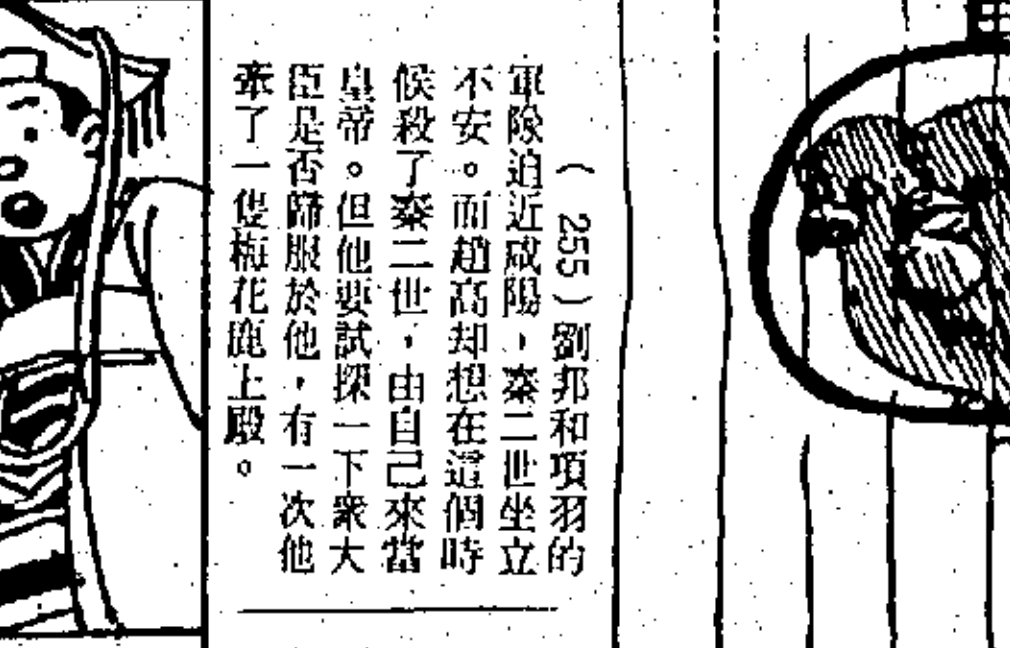 （255）劉邦和項羽的
軍隊迫近咸陽，秦二世坐立
不安。而趙高却想在這個時
候殺了秦二世，由自己來當
皇帝。但他要試探一下衆大
臣是否歸服於他，有一次他
牽了一隻梅花鹿上殿。